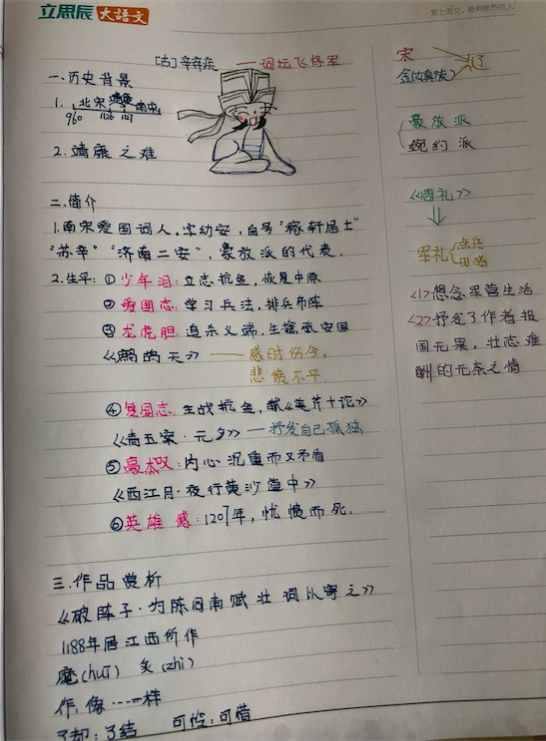 立思辰大语文
爱上语文，做有教养的人
[古] 辛弃疾 ——词坛飞将军
一、历史背景
1. 北宋 靖康 南宋
960 1126 1127
2. 靖康之难
二、简介
1. 南宋爱国词人，字幼安，自号"稼轩居士"
"苏辛""济南二安"，豪放派的代表．
2. 生平：①少年泪：立志抗金，恢复中原
②爱国志：学习兵法，排兵布阵
③龙虎胆：追杀义端，生擒张安国
《鹧鸪天》——感时伤今，
悲愤不平．
④复国志：主战抗金，献《美芹十论》
《青玉案·元夕》——抒发自己孤独
⑤豪杰叹：内心沉重而又矛盾
《西江月·夜行黄沙道中》
⑥英雄憾：1207年，忧愤而死．
三、作品赏析
《破阵子·为陈同甫赋壮词以寄之》
1188年居江西所作
麾(huī) 炙(zhì)
作：像……一样
了却：了结 可怜：可惜
宋
辽
金(女真族)
豪放派
婉约派
《周礼》
军礼
点兵
田猎
<1>想念军营生活
<2>抒发了作者报
国无果，壮志难
酬的无奈之情